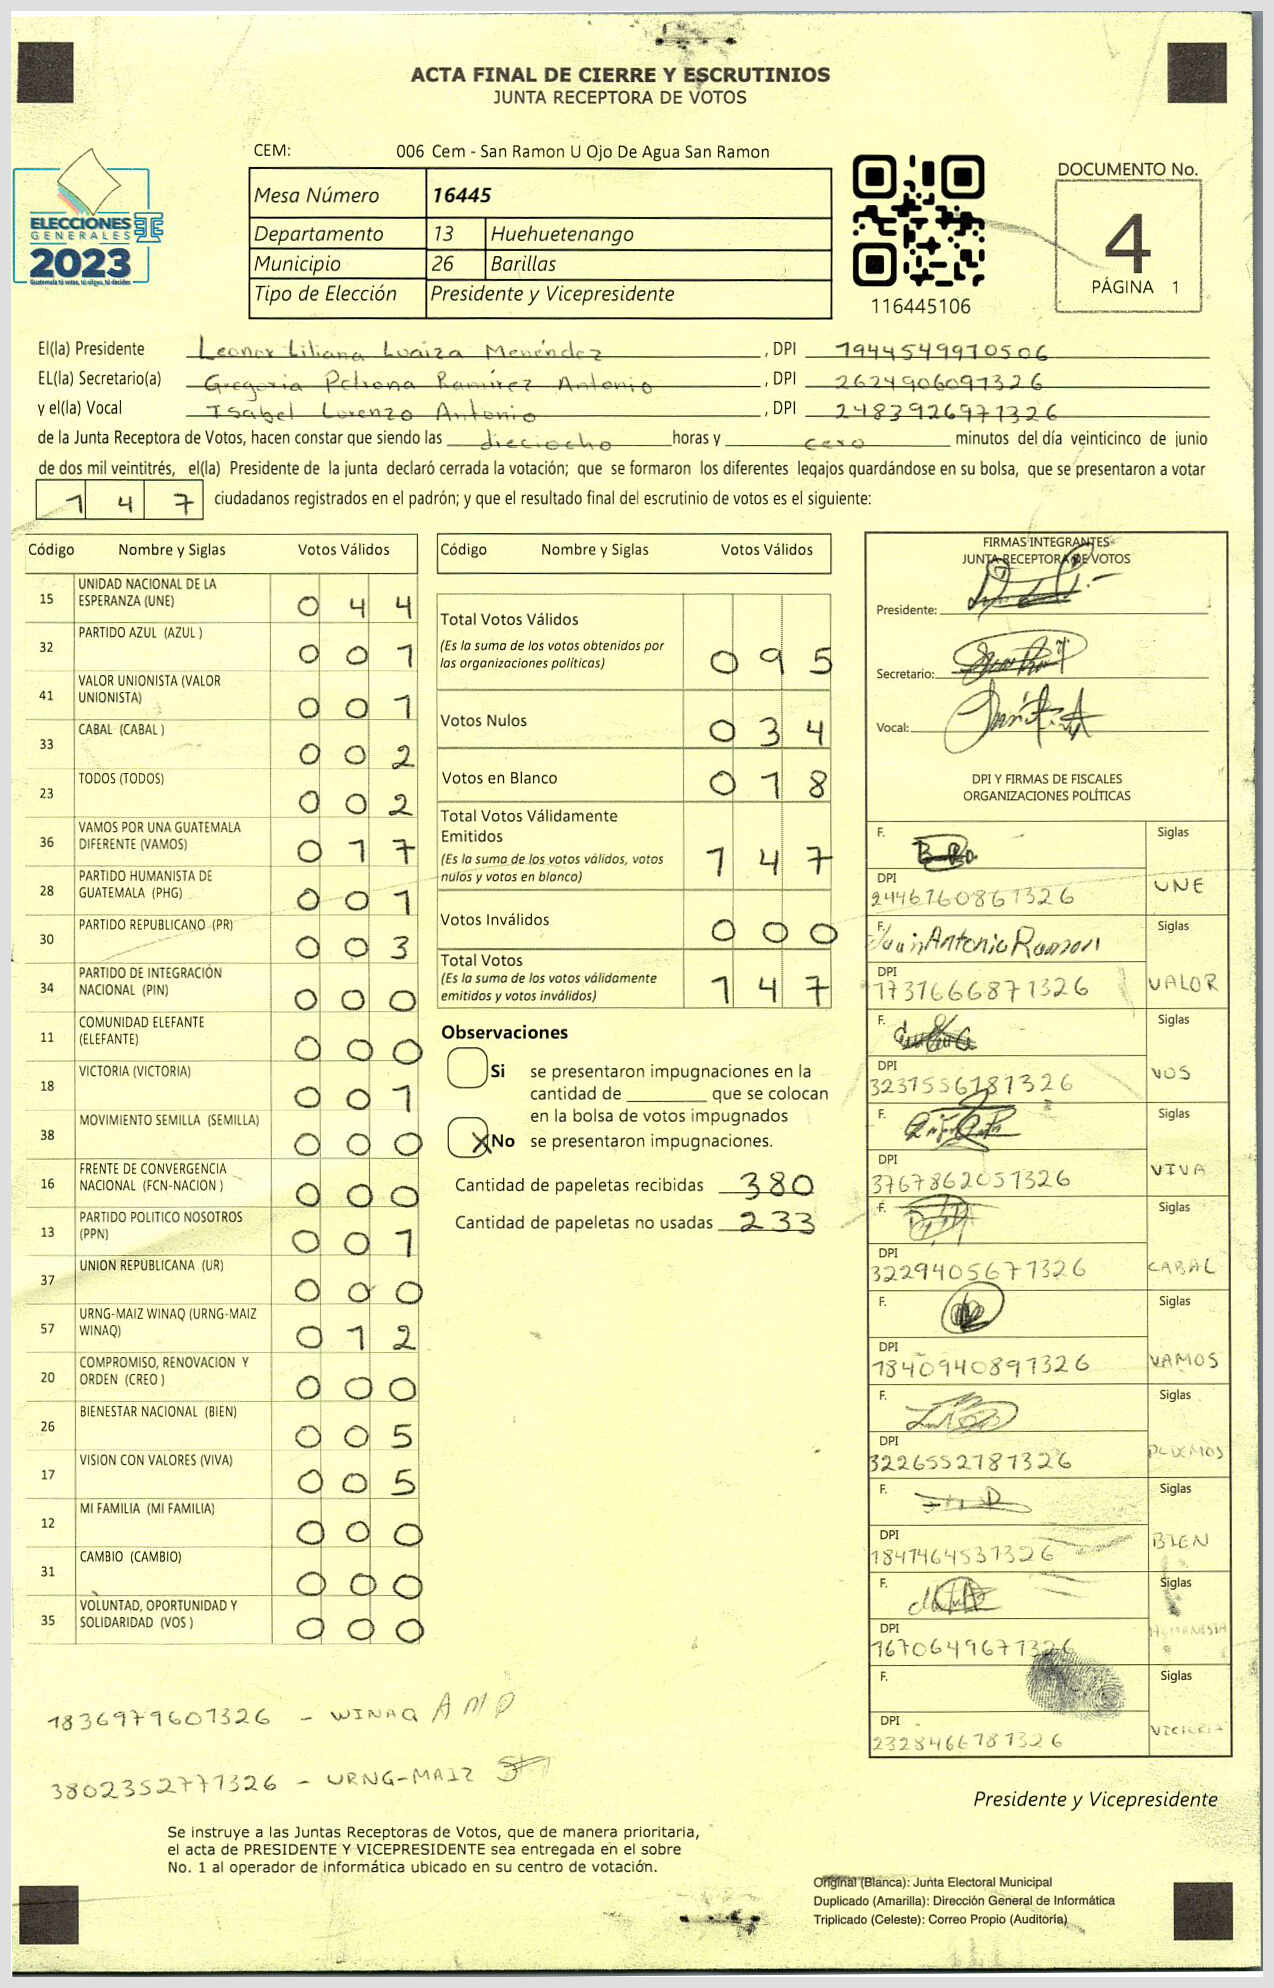 ACTA FINAL DE CIERRE Y ESCRUTINIOS
JUNTA RECEPTORA DE VOTOS
CEM: 006 Cem - San Ramon U Ojo De Agua San Ramon
ELECCIONES
GENERALES
2023
Guatemala tú votas, tú eliges, tú decides
Mesa Número 16445
Departamento 13 Huehuetenango
Municipio 26 Barillas
Tipo de Elección Presidente y Vicepresidente
116445106
DOCUMENTO No.
4
PÁGINA 1
El(la) Presidente Leonor Liliana Loaiza Menéndez , DPI 1944549970506
EL(la) Secretario(a) Gregoria Petrona Ramírez Antonio , DPI 2624906091326
y el(la) Vocal Isabel Lorenzo Antonio , DPI 2483926971326
de la Junta Receptora de Votos, hacen constar que siendo las dieciocho horas y cero minutos del día veinticinco de junio
de dos mil veintitrés, el(la) Presidente de la junta declaró cerrada la votación; que se formaron los diferentes legajos guardándose en su bolsa, que se presentaron a votar
1 4 7 ciudadanos registrados en el padrón; y que el resultado final del escrutinio de votos es el siguiente:
Código Nombre y Siglas Votos Válidos
15 UNIDAD NACIONAL DE LA ESPERANZA (UNE) 0 4 4
32 PARTIDO AZUL (AZUL ) 0 0 1
41 VALOR UNIONISTA (VALOR UNIONISTA) 0 0 1
33 CABAL (CABAL ) 0 0 2
23 TODOS (TODOS) 0 0 2
36 VAMOS POR UNA GUATEMALA DIFERENTE (VAMOS) 0 1 7
28 PARTIDO HUMANISTA DE GUATEMALA (PHG) 0 0 1
30 PARTIDO REPUBLICANO (PR) 0 0 3
34 PARTIDO DE INTEGRACIÓN NACIONAL (PIN) 0 0 0
11 COMUNIDAD ELEFANTE (ELEFANTE) 0 0 0
18 VICTORIA (VICTORIA) 0 0 1
38 MOVIMIENTO SEMILLA (SEMILLA) 0 0 0
16 FRENTE DE CONVERGENCIA NACIONAL (FCN-NACION ) 0 0 0
13 PARTIDO POLITICO NOSOTROS (PPN) 0 0 1
37 UNION REPUBLICANA (UR) 0 0 0
57 URNG-MAIZ WINAQ (URNG-MAIZ WINAQ) 0 1 2
20 COMPROMISO, RENOVACION Y ORDEN (CREO ) 0 0 0
26 BIENESTAR NACIONAL (BIEN) 0 0 5
17 VISION CON VALORES (VIVA) 0 0 5
12 MI FAMILIA (MI FAMILIA) 0 0 0
31 CAMBIO (CAMBIO) 0 0 0
35 VOLUNTAD, OPORTUNIDAD Y SOLIDARIDAD (VOS ) 0 0 0
1836979601326 - WINAQ
3802352771326 - URNG-MAIZ
Código Nombre y Siglas Votos Válidos
Total Votos Válidos
(Es la suma de los votos obtenidos por
las organizaciones políticas) 0 9 5
Votos Nulos 0 3 4
Votos en Blanco 0 1 8
Total Votos Válidamente
Emitidos
(Es la suma de los votos válidos, votos
nulos y votos en blanco) 1 4 7
Votos Inválidos 0 0 0
Total Votos
(Es la suma de los votos válidamente
emitidos y votos inválidos) 1 4 7
Observaciones
Si se presentaron impugnaciones en la
cantidad de ________ que se colocan
en la bolsa de votos impugnados
X No se presentaron impugnaciones.
Cantidad de papeletas recibidas 380
Cantidad de papeletas no usadas 233
FIRMAS INTEGRANTES
JUNTA RECEPTORA DE VOTOS
Presidente:
Secretario:
Vocal:
DPI Y FIRMAS DE FISCALES
ORGANIZACIONES POLÍTICAS
F. Siglas
DPI
2446760861326 UNE
F. Juan Antonio Ramon Siglas
DPI
1731666871326 VALOR
F. Siglas
DPI
3231556181326 VOS
F. Siglas
DPI
3767862051326 VIVA
F. Siglas
DPI
3229405671326 CABAL
F. Siglas
DPI
1840940891326 VAMOS
F. Siglas
DPI
3226552781326 PODEMOS
F. Siglas
DPI
1847464531326 BIEN
F. Siglas
DPI
1670649671326 HUMANISTA
F. Siglas
DPI
2328466781326 VICTORIA
Presidente y Vicepresidente
Se instruye a las Juntas Receptoras de Votos, que de manera prioritaria,
el acta de PRESIDENTE Y VICEPRESIDENTE sea entregada en el sobre
No. 1 al operador de informática ubicado en su centro de votación.
Original (Blanca): Junta Electoral Municipal
Duplicado (Amarilla): Dirección General de Informática
Triplicado (Celeste): Correo Propio (Auditoría)